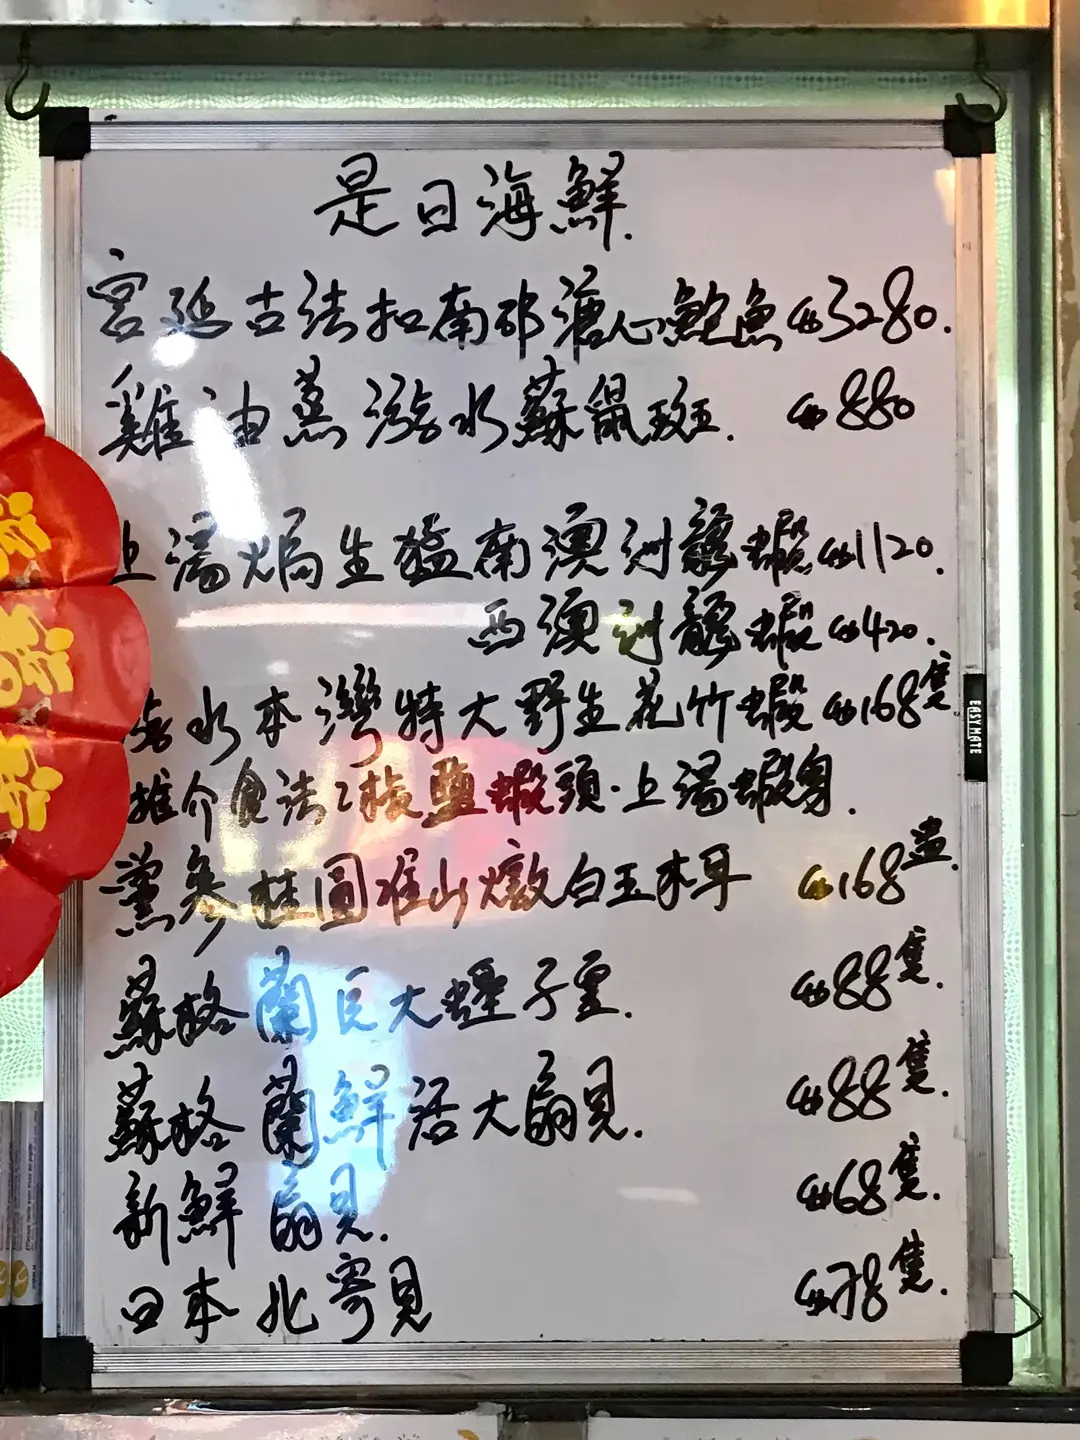 是日海鮮.
宮廷古法扣南非溏心鮑魚$3280.
雞油蒸游水蘇鼠斑. $880
上湯焗生猛南澳洲龍蝦$1120.
西澳洲龍蝦$420.
游水本灣特大野生花竹蝦$168隻
推介食法:椒鹽蝦頭·上湯蝦身.
黨參桂圓准山燉白玉木耳 $168盅.
蘇格蘭巨大蟶子皇. $88隻.
蘇格蘭鮮活大扇貝. $88隻.
新鮮扇貝. $68隻.
日本北寄貝 $78隻.
EASYMATE